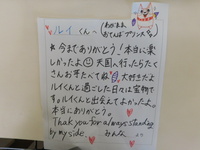 ルイくんへ
(わがまま
おてんばプリンス)
*今までありがとう!本当に楽
しかったよ 天国へ行ったらたく
さんお芋たべてね 大好きだよ
ルイくんと過ごした日々は宝物で
す。ルイくんと出会えてよかったよ。
本当にありがとう。
Thank you for always standing
by my side.
みんな より